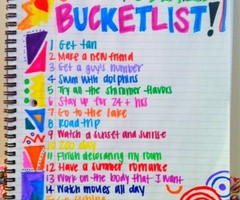 BUCKETLIST!
1 Get tan
2 Make a new friend
3 Get a guy's number
4 Swim with dolphins
5 Try all the shramber flavors
6 Stay up for 24+ hrs
7 Go to the lake
8 Road trip
9 Watch a sunset and sunrise
10 Zoo day
11 Finish decorating my room
12 Have a summer romance
13 Work on the body that I want
14 Watch movies all day